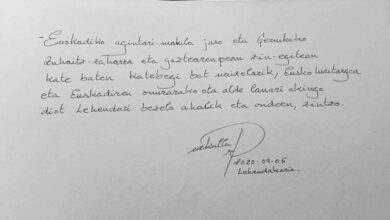 - Euskadiko agintari-makila jaso eta Gernikako
Zuhaitz-zaharra eta gaztearenpean zin-egitean
kate baten katebegi bat naizelarik, Eusko herritargoa
eta Euskadiren onurarako eta alde lanari ekingo
diot Lehendakari bezela ahalik eta ondoen, zintzo.
2020-09-05
Lehendakaria.